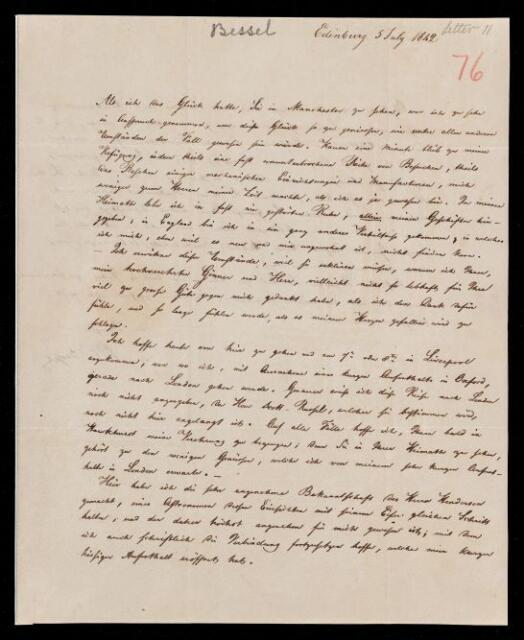 Bessel
Edinburg 5 July 1842
letter 11
76
Als ich das Glück hatte, Sie in Manchester zu sehen, war ich zu sehr
in Anspruch genommen, um dieses Glück so zu genießen, wie unter allen anderen
Umständen der Fall gewesen sein würde. Kaum eine Minute blieb zu meiner
Verfügung, indem theils eine fast ununterbrochene Reihe von Besuchen, theils
das Besehen einiger mechanischen Einrichtungen und Manufacturen, mich
weniger zum Herren meiner Zeit machte, als ich es je gewesen bin. In meiner
Heimath lebe ich in fast Ruhe, allein meinen Geschäften hin-
gegeben; in England bin ich in ein ganz anderes gekommen, in welches
ich mich, eben weil es neu und mir ungewohnt ist, nicht finden kann.
– Ich erwähne diese Umstände, weil sie erklären müssen, warum ich Ihnen,
mein hochverehrter Gönner und Herr, vielleicht nicht so lebhaft, für Ihre
viel zu große Güte gegen mich gedankt habe, als ich den Dank dafür
fühle, und so lange fühlen werde, als es meinem Herzen gefallen wird zu
schlagen.
Ich hoffe heute von hier zu gehen und am 7t oder 8t in Liverpool
anzukommen, von wo ich, mit Ausnahme eines kurzen Aufenthalts in Oxford,
gerade nach London gehen werde. Genauer weiß ich diese Reise nach London
noch nicht anzugeben, da Herr welcher sie bestimmen wird,
noch nicht hier angelangt ist. Auf alle Fälle hoffe ich, Ihnen bald in
Hawkhurst meine Verehrung zu bezeugen; denn Sie in Ihrer Heimath zu sehen,
gehört zu den wenigen Genüssen, welche ich von meinem sehr kurzen Aufent-
halte in London erwarte. –
Hier habe ich die sehr angenehme Bekanntschaft des Herrn Henderson
gemacht, eines Astronomen dessen Einsichten mit seinem Eifer gleichen Schritt
halten, und der daher höchst angenehm für mich gewesen ist; mit dem
ich auch schriftlich die Verbindung fortzusetzen hoffe, welche mein kurzer
hiesiger Aufenthalt eröffnet hat.